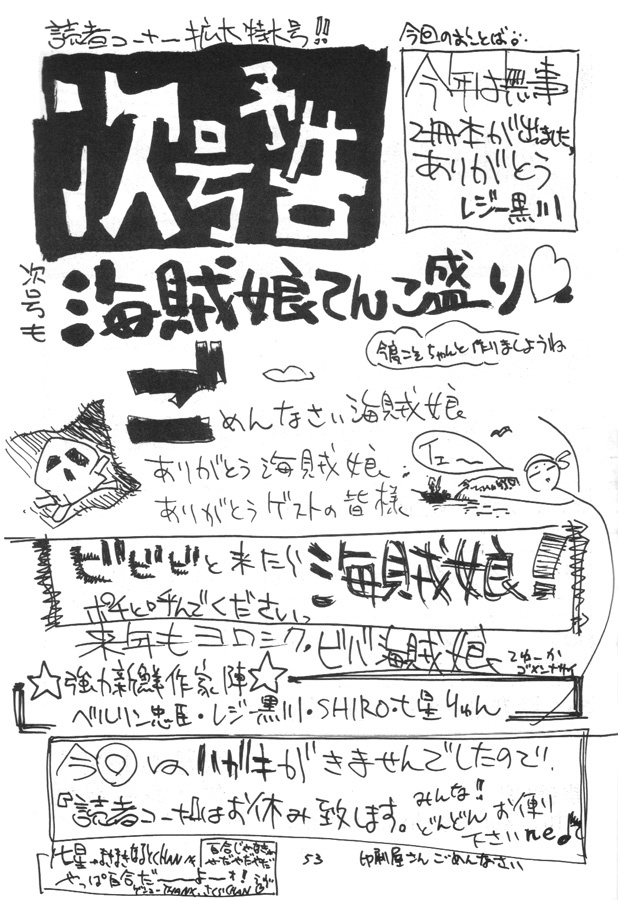 読者コーナー拡大特大号!!
次号予告
今回のおことば
今年は無事
2冊本が出ました。
ありがとう
レジー黒川
次号も
海賊娘てんこ盛り♡
今度こそちゃんと作りましょうね
ごめんなさい海賊娘
ありがとう海賊娘
ありがとうゲストの皆様
イエ〜
ビビビと来たら海賊娘!
ポチと呼んでください。
来年もヨロシク。ビバ海賊娘
てゆーか
ゴメンナサイ
☆強力新鮮作家陣☆
ベルリン忠臣・レジー黒川・SHIRO・七星りゅん
今回はハガキがきませんでしたので、
『読者コーナー』はお休み致します。
みんな!!
どんどんお便り
下さいne♪
やっぱ百合だーーよーォ!
53
印刷屋さんごめんなさい